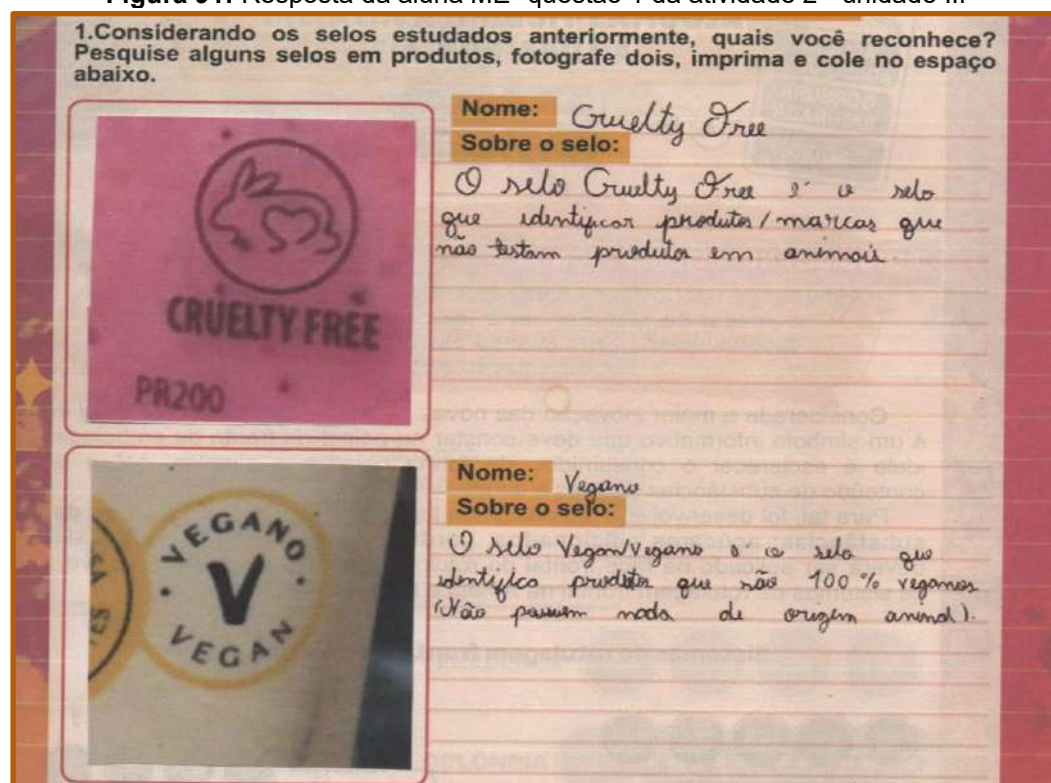 Resposta da aluna ME- questão 1 da atividade 2 - unidade III
1.Considerando os selos estudados anteriormente, quais você reconhece?
Pesquise alguns selos em produtos, fotografe dois, imprima e cole no espaço
abaixo.
CRUELTY FREE
PR200
Nome: Cruelty Free
Sobre o selo:
O selo Cruelty Free é o selo
que identificar produtos/marcas que
não testam produtos em animais.
VEGANO
V
VEGAN
Nome: Vegano
Sobre o selo:
O selo Vegan/vegano é o selo que
identifica produtos que são 100% veganos
(Não possuem nada de origem animal).